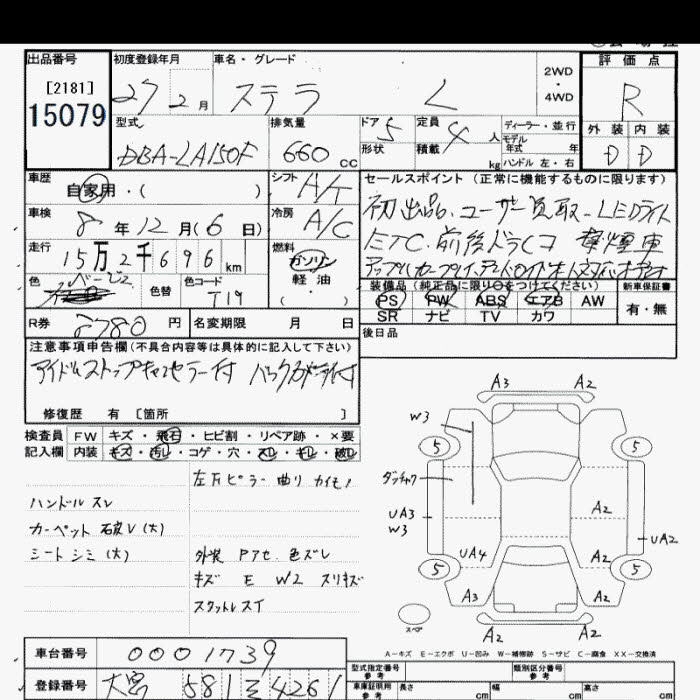 出品番号 初度登録年月 車名・グレード 2WD・4WD 評価点
[2181] 27 2月 ステラ L R
15079
型式 排気量 ドア 5 定員 4人 ディーラー・並行 外装 内装
形状 積載 kg モデル年式 年
DBA-LA150F 660cc ハンドル 左・右 D D
車歴 自家用・( ) シフト A/T セールスポイント (正常に機能するものに限ります)
車検 8年12月(6日) 冷房 A/C 初出品.ユーザー買取.LEDライト
走行 15万2千696km 燃料 ガソリン ETC.前後ドラレコ 禁煙車
軽油・( )
色 ベージュ 色替 色コード T19
装備品 (純正品に限り○をつけてください) 新車保証書
PS PW ABS エアB AW 有・無
SR ナビ TV カワ
R券 2780円 名変期限 月 日 後日品
注意事項申告欄(不具合内容等は具体的に記入して下さい)
アイドルストップキャンセラー付 バックカメラ付
修復歴 有 [箇所 ]
検査員 FW キズ・飛石・ヒビ割・リペア跡・×要
記入欄 内装 キズ・汚レ・コゲ・穴・スレ・キレ・破レ
左Fピラー曲り
ハンドル スレ
カーペット (大)
シート シミ (大)
外装 Pアセ.色ズレ
キズ E W2 スリキズ
A3 A2
W3
5 5
UA3 A2
W3 UA2
UA4 A2
5 5
A3 A2
スペア
A2 A2
A-キズ E-エクボ U-凹み W-補修跡 S-サビ C-腐食 XX-交換済
車台番号 0001739
型式指定番号 参考 類別区分番号 参考
登録番号 581 4261
車庫証明用 参考 長さ cm 幅 cm 高さ cm